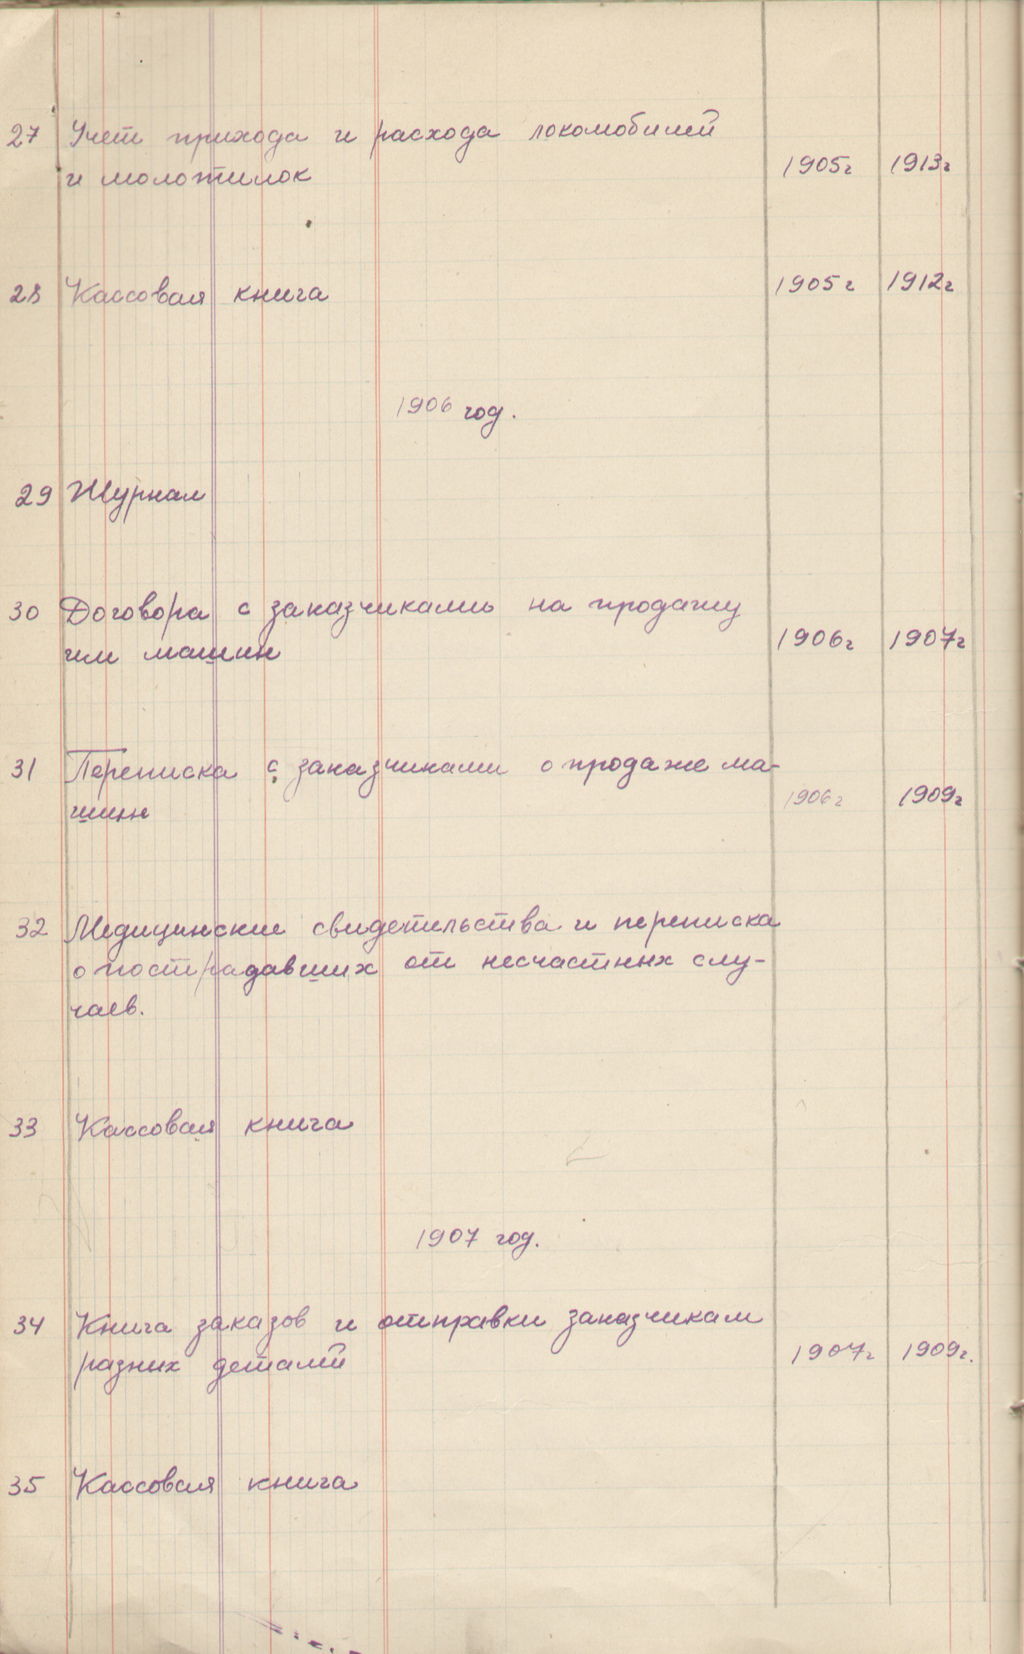 27 Учет прихода и расхода локомобилей
и молотилок 1905г 1913г
28 Кассовая книга 1905г 1912г
1906 год.
29 Журнал
30 Договора с заказчиками на продажу
им машин 1906г 1907г
31 Переписка с заказчиками о продаже ма-
шин 1906г 1909г
32 Медицинские свидетельства и переписка
о пострадавших от несчастных слу-
чаев.
33 Кассовая книга
1907 год.
34 Книга заказов и отправки заказчикам
разных деталей 1907г 1909г.
35 Кассовая книга